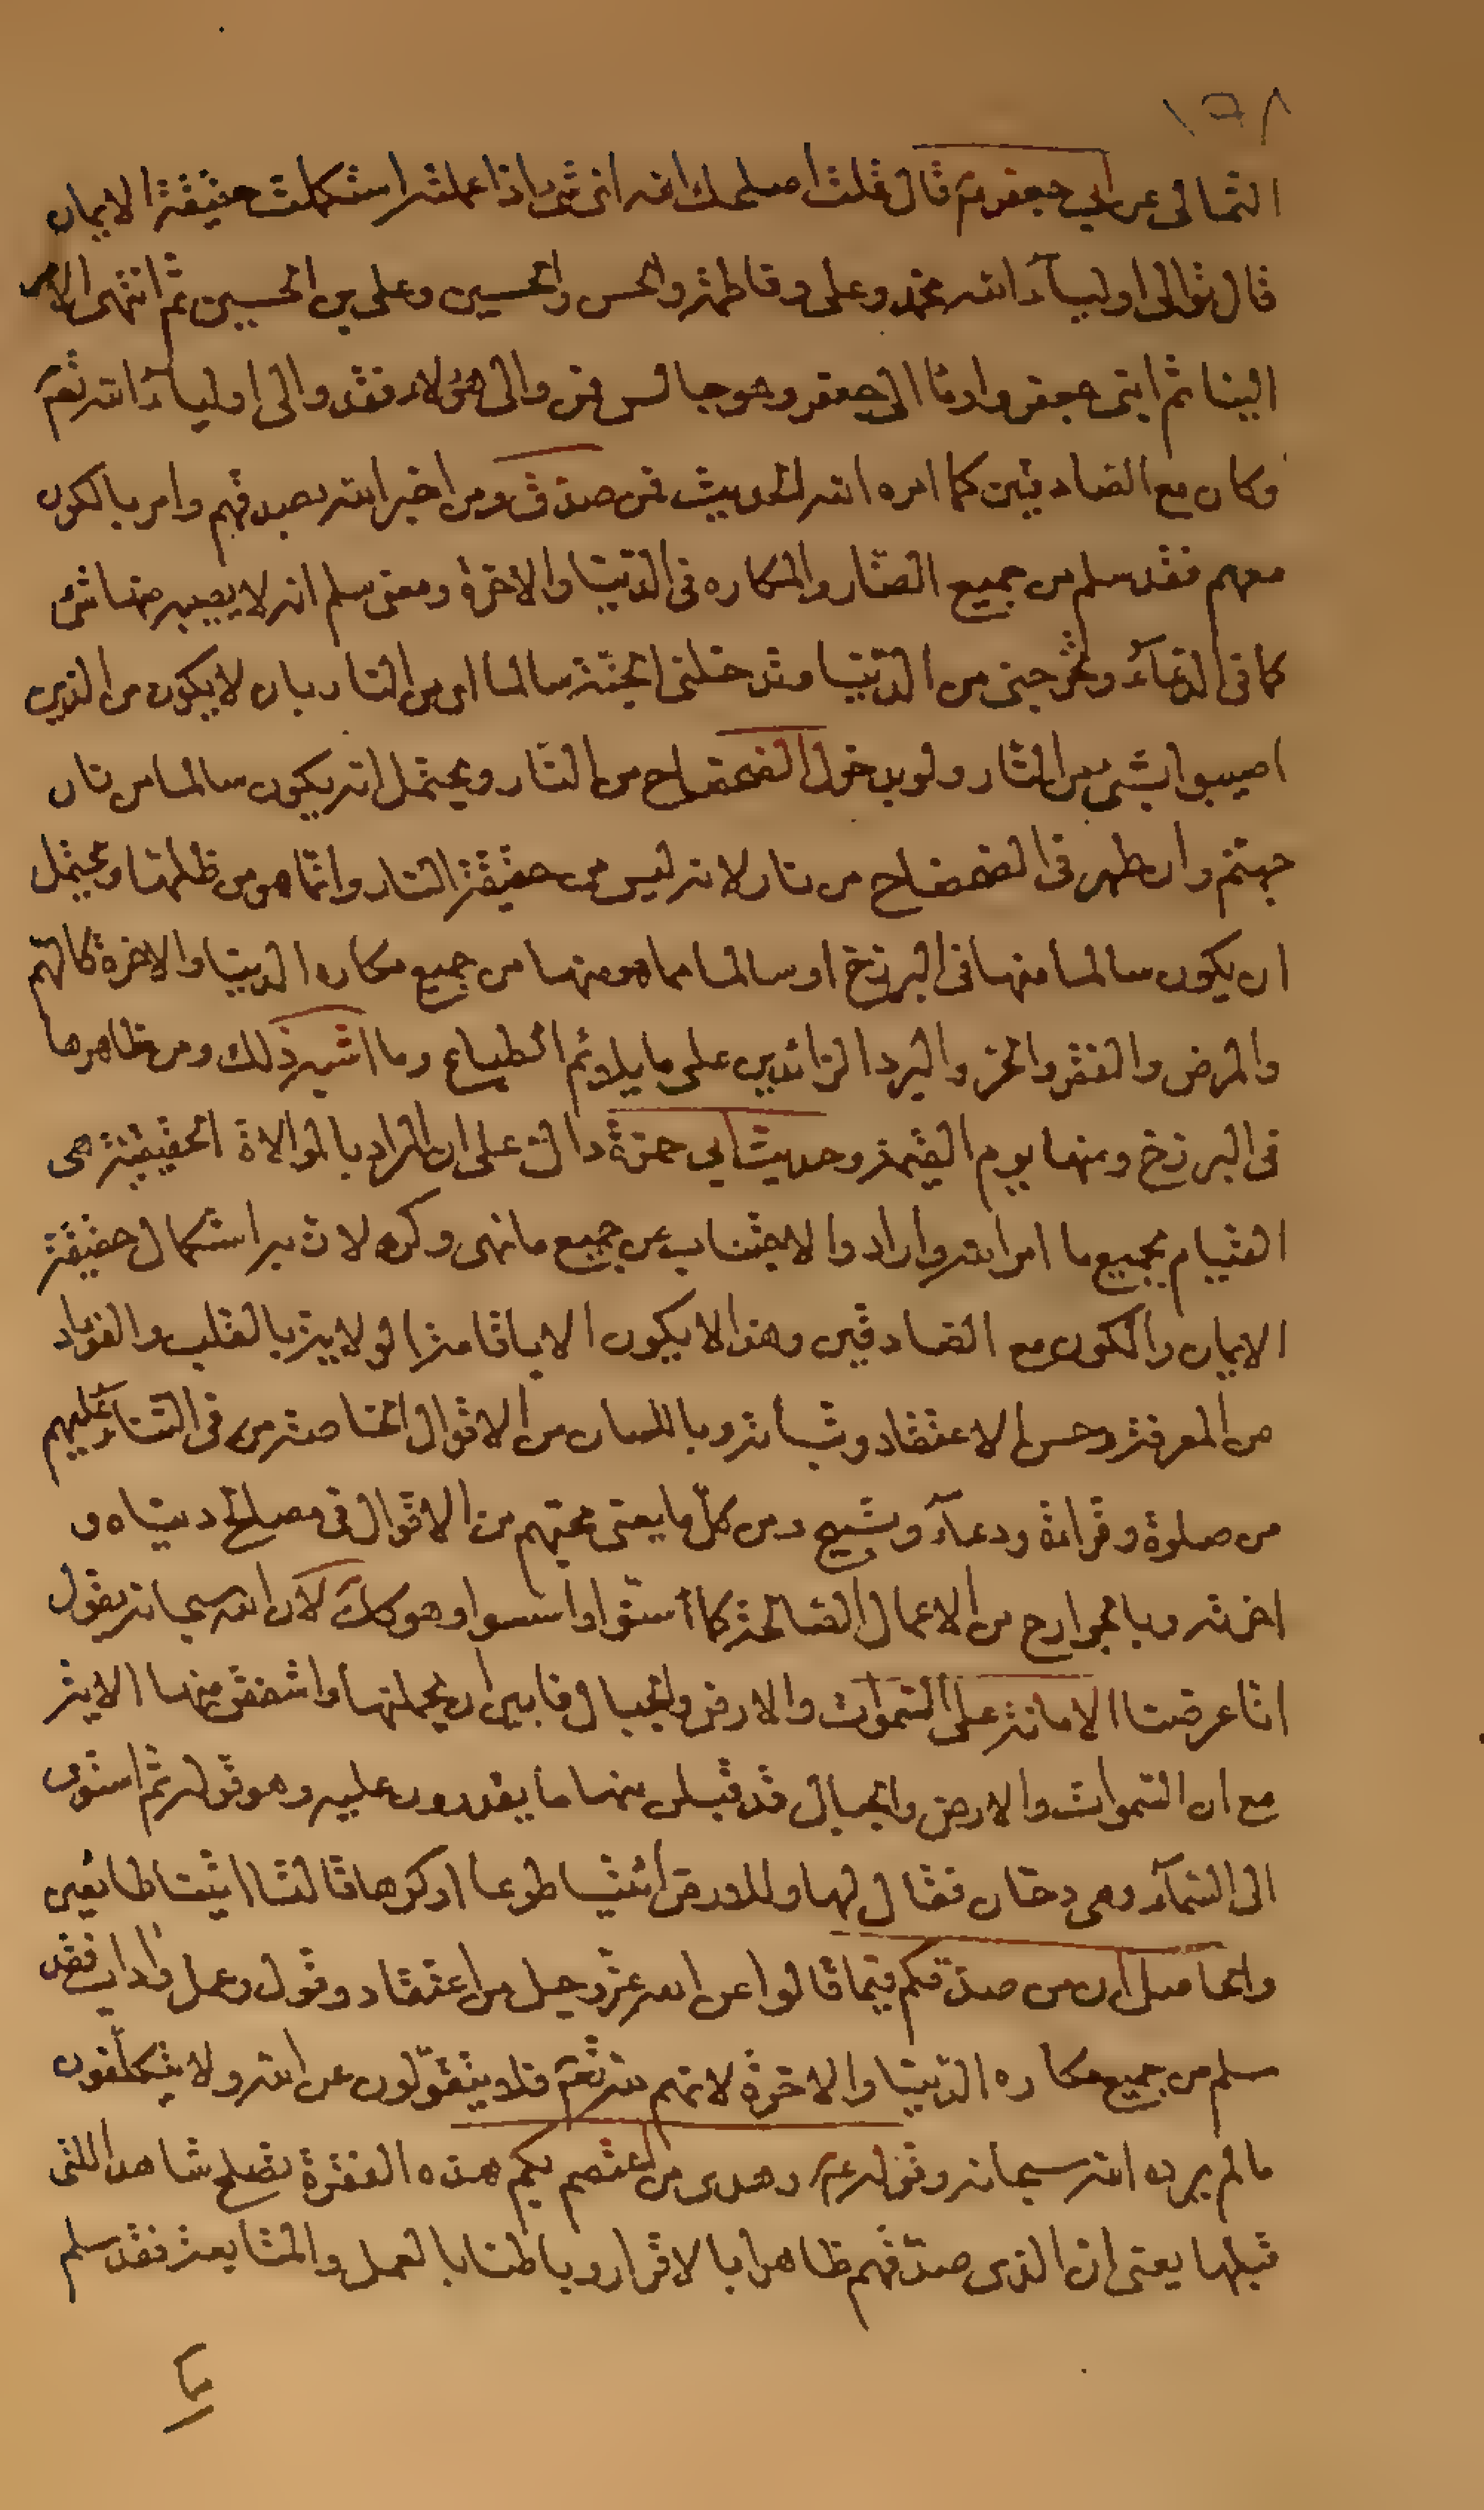 ١٦٨
الثمالى عن ابي جعفر ع قال قلت اصلحك الله اى شئ اذا عملته استكملت حقيقة الايمان
قال توالى اولياء الله محمد وعلى وفاطمة والحسن والحسين وعلى بن الحسين ثم انتهى الامر
الينا ثم ابنى جعفر واومأ الى جعفر وهو جالس فمن والى هؤلاء فقد والى اولياء الله تعم
وكان مع الصادقين كما امره الله الحديث فمن صدق ومن اخبر الله بصدقهم وامر بالكون
معهم فقد سلم من جميع المضار والمكاره فى الدنيا والاخرة ومعنى سلم انه لا يصيبه منها شئ
كما فى الدعاء وتخرجنى من الدنيا وتدخلنى الجنة سالما اى من النار بان لا يكون من الذين
اصيبوا بشئ من النار ولو بدخول الضحضاح من النار ويحتمل انه يكون سالما من نار
جهنم وان ظهر فى الضحضاح من نار لانه ليس من حقيقة النار وانما هو من ظلمها ويحتمل
ان يكون سالما منها فى البرزخ او سالما مما هو منها من جميع مكاره الدنيا والاخرة كالهم
والمرض والفقر والحر والبرد الزائدين على ما يلائم الطباع وما اشبه ذلك ومن مظاهرها
فى البرزخ ومنها يوم القيمة وحديث ابي حمزة دال على ان المراد بالموالاة الحقيقية هى
القيام بجميع ما امر الله واراد والاجتناب عن جميع ما نهى وكره لان به استكمال حقيقة
الايمان والكون مع الصادقين وهذا لا يكون الا باقامة الولاية بالقلب والفؤاد
من المعرفة وحسن الاعتقاد وثباته وباللسان من الاقوال الخاصة من فى الثناء عليهم
من صلوة وقراءة ودعاء وتسبيح ومن كل ما يعنى محبتهم من الاقوال فى مصلح دنياه و
اخرته وبالجوارح من الاعمال الصالحة كما استوا واسسوا وهو كك لان الله سبحانه يقول
انا عرضنا الامانة على السموات والارض والجبال فابين ان يحملنها واشفقن منها الاية
مع ان السموات والارض والجبال قد قبلن منها ما يقدرون عليه وهو قوله ثم استوى
الى السماء وهى دخان فقال لها وللارض ائتيا طوعا او كرها قالتا اتينا طايعين
والحاصل ان من صدقكم فيما قالوا عن الله عز وجل من اعتقاد وقول وعمل واداب فقد
سلم من جميع مكاره الدنيا والاخرة لانهم لله تعم فلا يتقولون على الله ولا يتكلفون
ما لم يرده الله سبحانه وقوله ع وهدى من اعتصم بكم هذه الفقرة تصلح شاهدا للتى
قبلها يعنى ان الذى صدقهم ظاهرا بالاقرار وباطنا بالعمل والمتابعة فقد سلم